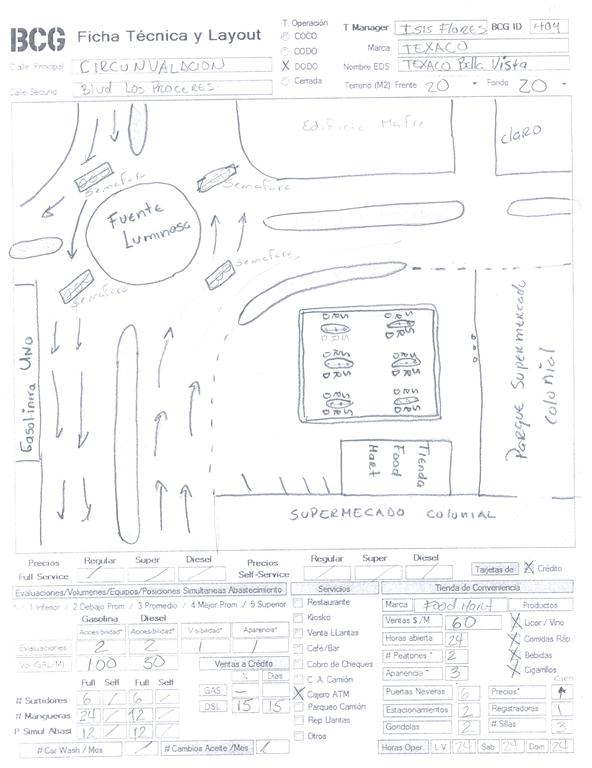 BCG Ficha Técnica y Layout
T. Operación
COCO
CODO
X DODO
Cerrada
T Manager ISIS FLORES BCG ID 404
Marca TEXACO
Nombre EDS TEXACO Bella Vista
Terreno (M2) Frente 20 Fondo 20
Calle Principal CIRCUNVALACION
Calle Secund Blvd Los Proceres
Edificio Mafre
Claro
Semafaro
Semafaro
Fuente Luminosa
Semafaro
Semafaro
Gasolinra UNO
S R D
S R D
S R D
S R D
S R D
S R D
Parque Supermercado Colonial
Tienda Food Mart
SUPERMECADO COLONIAL
Precios Regular Super Diesel Precios Regular Super Diesel
Full Service Self-Service
Tarjetas de X Crédito
Evaluaciones/Volumenes/Equipos/Posiciones Simultaneas Abastecimiento
1 Inferior / 2 Debajo Prom / 3 Promedio / 4 Mejor Prom / 5 Superior
Gasolina Diesel
Accesibilidad* Accesibilidad* Visibilidad* Apariencia*
Evauaciones 2 2 1 1
Vol GAL/M) 100 50
Ventas a Crédito
% Dias
GAS –
DSL 15 15
Full Self Full Self
# Surtidores 6 / 6 /
# Mangueras 24 / 12 /
P Simul Abast 12 / 12 /
# Car Wash / Mes # Cambios Aceite /Mes
Servicios
Restaurante
Kiosko
Venta LLantas
Café/Bar
Cobro de Cheques
C. A. Camión
X Cajero ATM
Parqueo Camión
Rep Llantas
Otros
Tienda de Conveniencia
Marca Food Mart Productos
Ventas $ /M 60 X Licor / Vino
Horas abierta 24 X Comidas Ráp.
# Peatones * 2 X Bebidas
Apariencia * 3 X Cigarrilos
Puertas Neveras 6 Precios*
Estacionamientos 2 Registradoras 1
Gondolas 2 # Sillas 3
Horas Oper. L-V 24 Sab 24 Dom 24